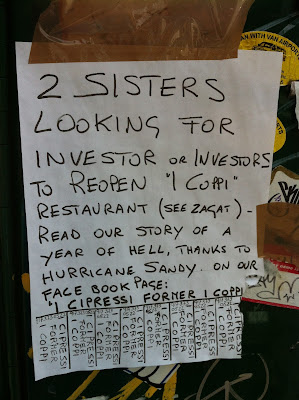 2 SISTERS
LOOKING FOR
INVESTOR OR INVESTORS
TO REOPEN "I COPPI"
RESTAURANT (SEE ZAGAT) -
READ OUR STORY OF A
YEAR OF HELL, THANKS TO
HURRICANE SANDY.. ON OUR
FACE BOOK PAGE:
"I CIPRESSI FORMER I COPPI"
I CIPRESSI
FORMER
I COPPI
I CIPRESSI
FORMER
I COPPI
I CIPRESSI
FORMER
I COPPI
I CIPRESSI
FORMER
I COPPI
I CIPRESSI
FORMER
I COPPI
I CIPRESSI
FORMER
I COPPI
I CIPRESSI
FORMER
I COPPI
AN WITH VAN AIRPOR